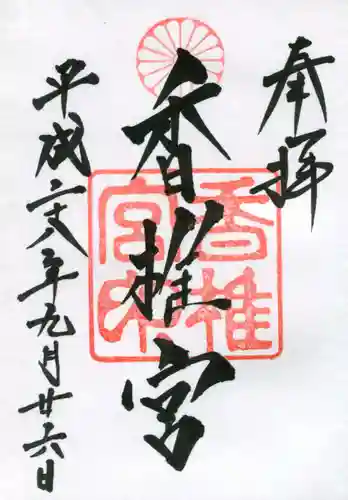 奉拝
香椎宮
平成二十八年九月廿六日
香椎
宮印